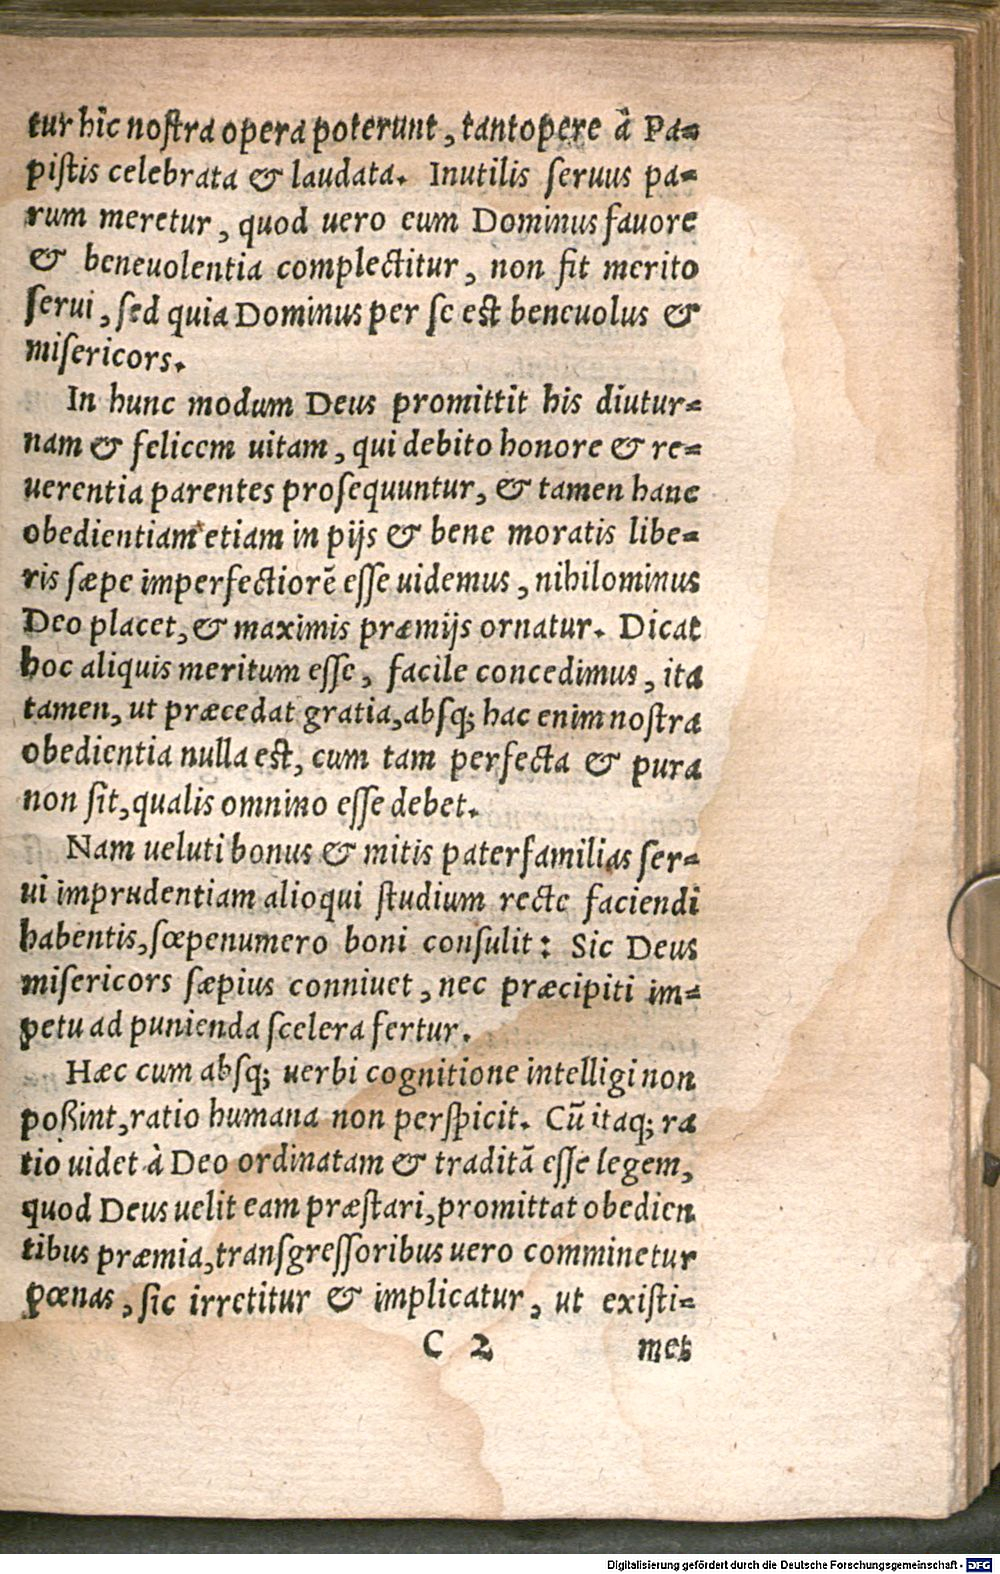 tur hîc noſtra opera poterunt, tantopere â Pa=
piſtis celebrata & laudata. Inutilis ſeruus pa=
rum meretur, quod uero eum Dominus fauore
& beneuolentia complectitur, non fit merito
ſerui, ſed quia Dominus per ſe est beneuolus &
miſericors.
In hunc modum Deus promittit his diutur=
nam & felicem uitam, qui debito honore & re=
uerentia parentes proſequuntur, & tamen hanc
obedientiam etiam in pijs & bene moratis libe=
ris ſæpe imperfectiorē eſſe uidemus, nihilominus
Deo placet, & maximis præmijs ornatur. Dicat
hoc aliquis meritum eſſe, facile concedimus, ita
tamen, ut præcedat gratia, abſq; hac enim noſtra
obedientia nulla est, cum tam perfecta & pura
non ſit, qualis omnino eſſe debet.
Nam ueluti bonus & mitis paterfamilias ſer=
ui imprudentiam alioqui ſtudium recte faciendi
habentis, ſœpenumero boni conſulit: Sic Deus
miſericors ſæpius conniuet, nec præcipiti im=
petu ad punienda ſcelera fertur.
Hæc cum abſq; uerbi cognitione intelligi non
poßint, ratio humana non perſpicit. Cū itaq; ra
tio uidet à Deo ordinatam & traditā eſſe legem,
quod Deus uelit eam præſtari, promittat obedien
tibus præmia, tranſgreſſoribus uero comminetur
pœnas, ſic irretitur & implicatur, ut exiſti=
C 2 met
Digitalisierung gefördert durch die Deutsche Forschungsgemeinschaft - DFG